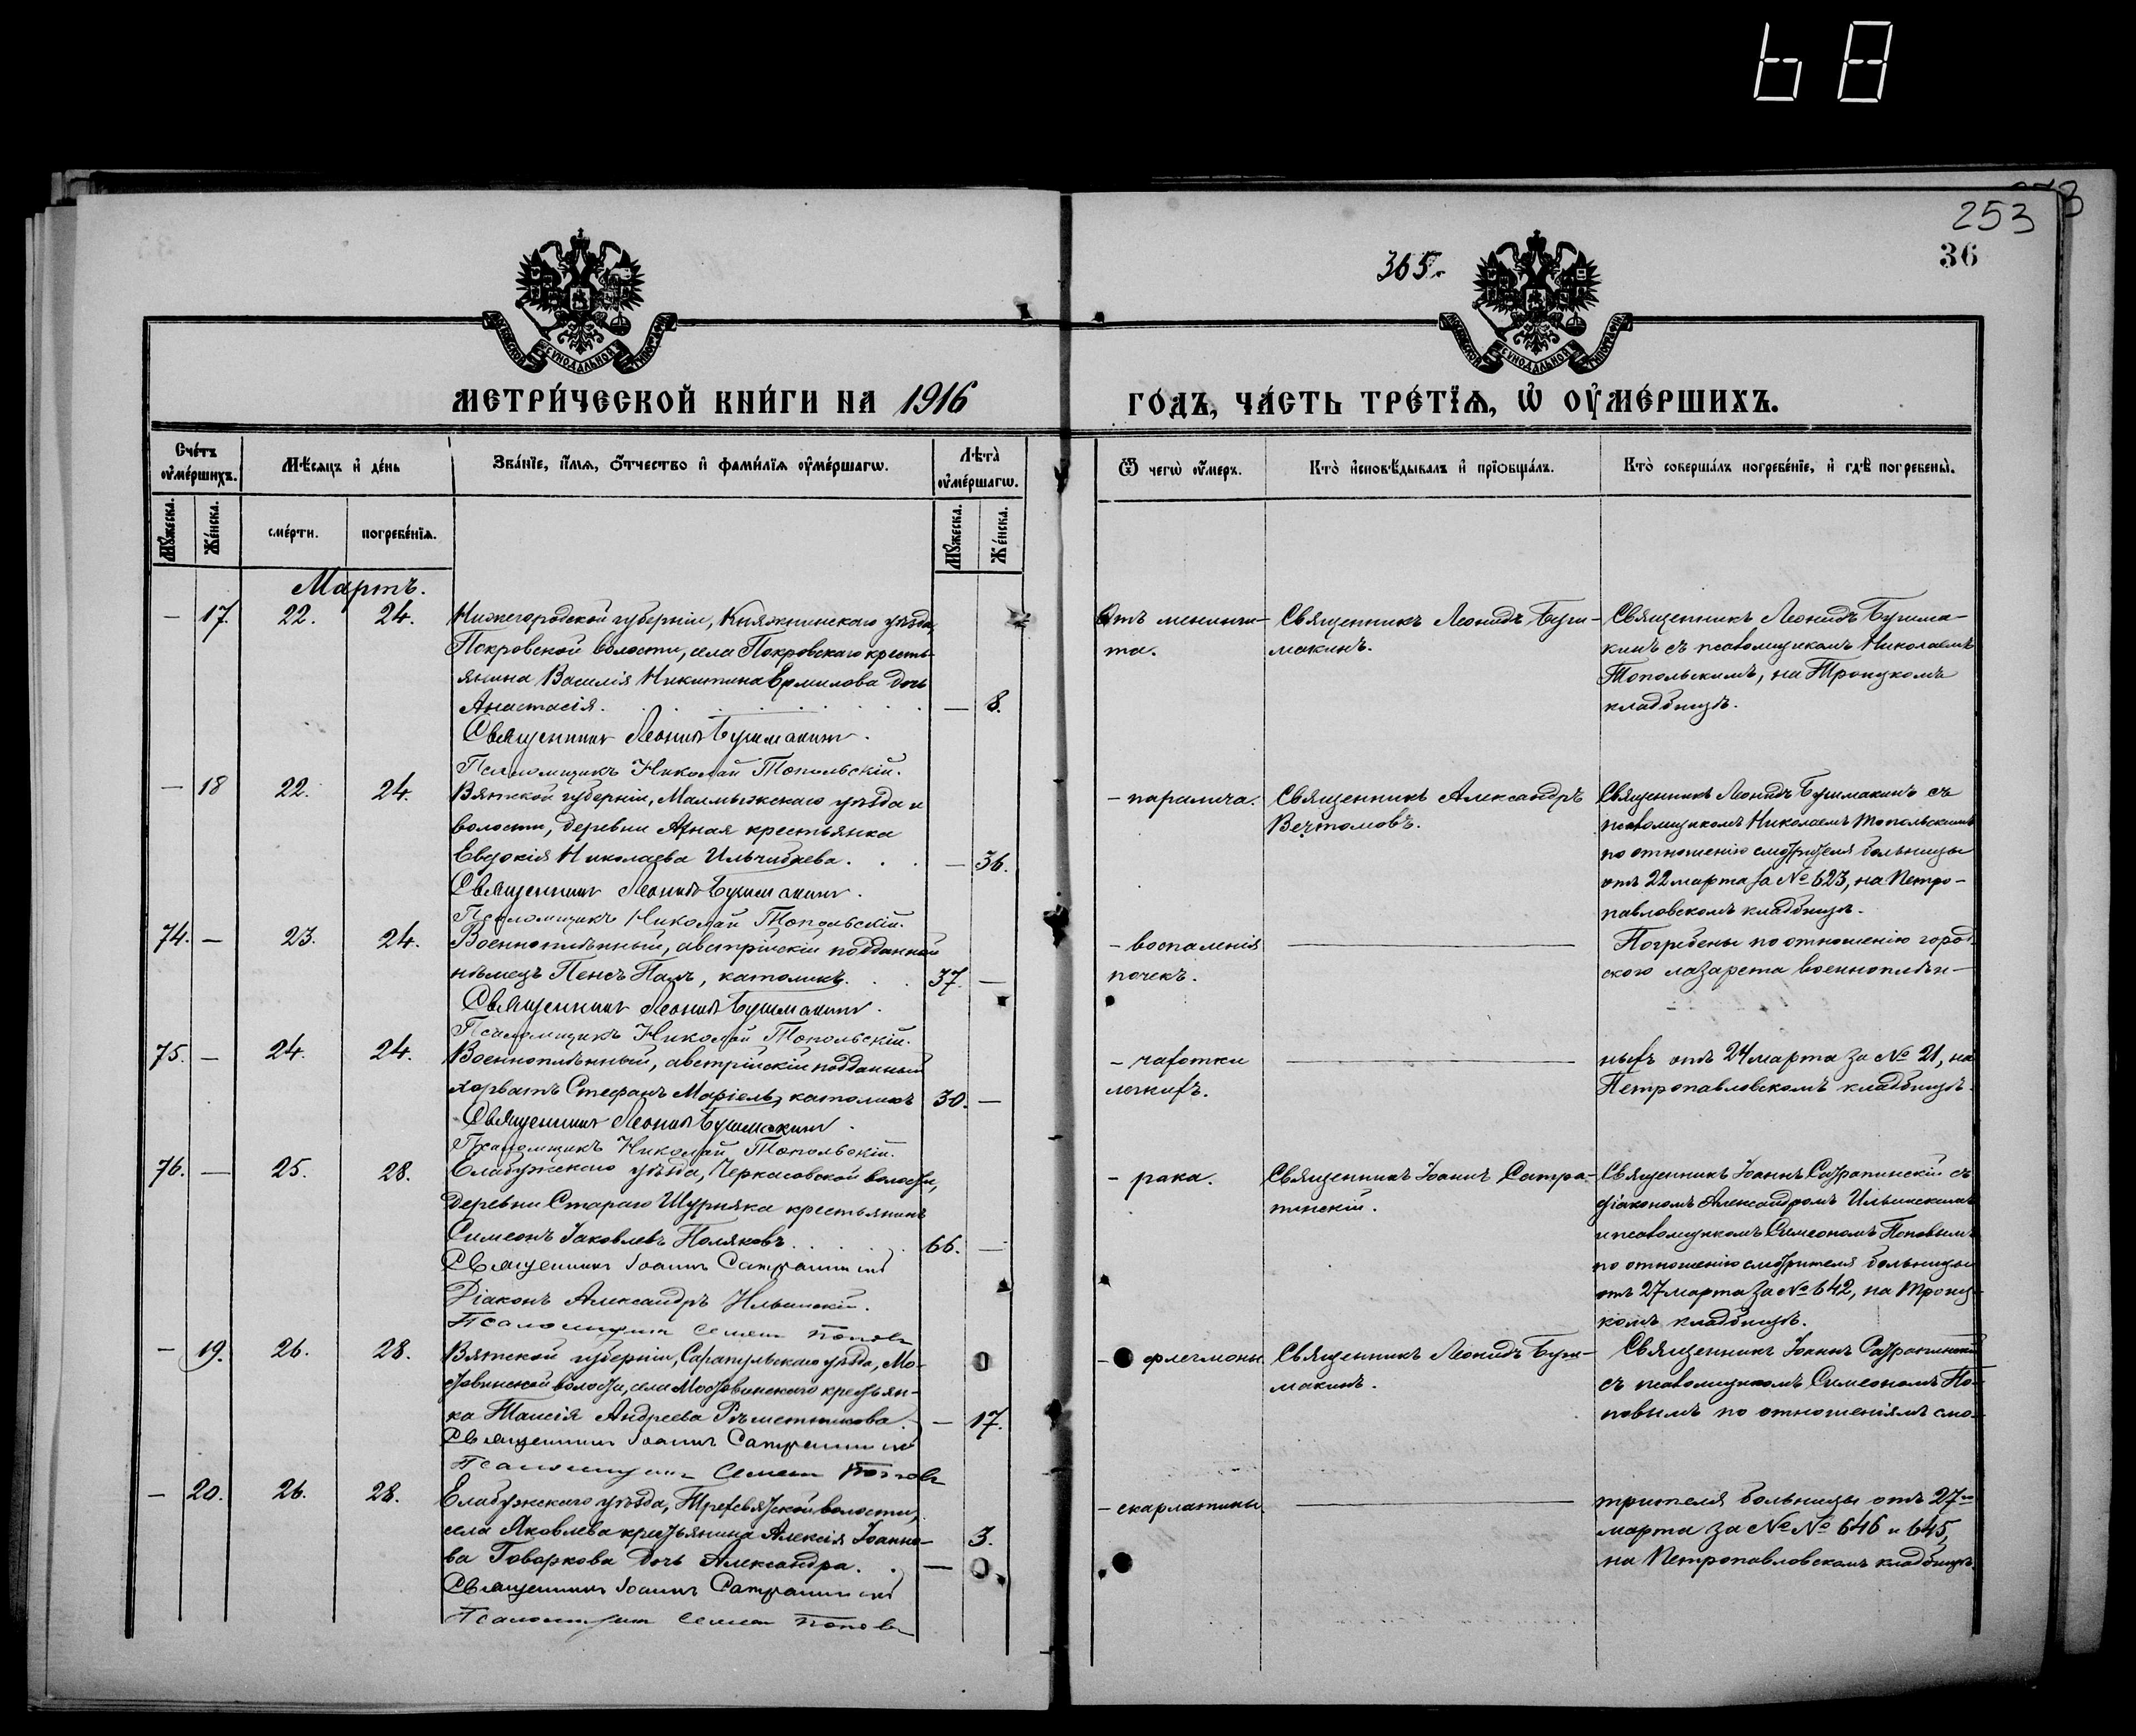 68
253
36
365.
МЕТРИ́ЧЕСКОЙ КНИ́ГИ НА 1916
ГО́ДЪ, ЧА́СТЬ ТРЕ́ТІѦ, Ѡ҆ ОУ҆МЕ́РШИХЪ.
Сче́тъ оу҆ме́ршихъ.
Мѣ́сѧцъ и҆ де́нь
Зва́нїе, и҆́мѧ, ѻ҆́тчество и҆ фами́лїѧ оу҆ме́ршагѡ.
Лѣ́та̀ оу҆ме́ршагѡ.
Ѿ чегѡ̀ оу҆́меръ.
Кто̀ и҆сповѣ́дывалъ и҆ прїѡбща́лъ.
Кто̀ соверша́лъ погребе́нїе, и҆ гдѣ̀ погребены̀.
Мꙋ́жеска.
Же́нска.
сме́рти.
погребе́нїѧ.
Мꙋ́жеска.
Же́нска.
Мартъ.
— 17. 22. 24.
Нижегородской губерніи, Княжнинскаго уѣзда,
Покровской волости, села Покровскаго кресть-
янина Василія Никитина Ермилова дочь
Анастасія. — 8.
Священникъ Леонидъ Бушмакинъ.
Псаломщикъ Николай Топольскій.
Отъ менинги-
та.
Священникъ Леонидъ Буш-
макинъ.
Священникъ Леонидъ Бушма-
кинъ съ псаломщикомъ Николаемъ
Топольскимъ, на Троицкомъ
кладбищѣ.
— 18 22. 24.
Вятской губерніи, Малмыжскаго уѣзда и
волости, деревни крестьянка
Евдокія Николаева Ильчибаева. — 36.
Священникъ Леонидъ Бушмакинъ.
Псаломщикъ Николай Топольскій.
- паралича.
Священникъ Александръ
Вечтомовъ.
Священникъ Леонидъ Бушмакинъ съ
псаломщикомъ Николаемъ Топольскимъ
по отношенію смотрителя больницы
отъ 22 марта за № 623, на Петро-
павловскомъ кладбищѣ.
74. — 23. 24.
Военноплѣнный, австрійскій подданный
нѣмецъ Пенсъ Палъ, католикъ. 37. —
Священникъ Леонидъ Бушмакинъ.
Псаломщикъ Николай Топольскій.
- воспаленія
почекъ.
Погребены по отношенію город-
ского лазарета военноплѣн-
75. — 24. 24.
Военноплѣнный, австрійскій подданный
хорватъ Стефанъ Маріель, католикъ 30. —
Священникъ Леонидъ Бушмакинъ.
Псаломщикъ Николай Топольскій.
- чахотки
легкихъ.
ныхъ отъ 24 марта за № 21, на
Петропавловскомъ кладбищѣ.
76. — 25. 28.
Елабужскаго уѣзда, Черкасовской волости,
деревни Стараго Шурняка крестьянинъ
Симеонъ Іаковлевъ Поляковъ. 66. —
Священникъ Іоаннъ Сатрапинскій
Діаконъ Александръ Ильинскій.
Псаломщикъ Семенъ Поповъ
- рака.
Священникъ Іоаннъ Сатра-
пинскій.
Священникъ Іоаннъ Сатрапинскій съ
діакономъ Александромъ Ильинскимъ
и псаломщикомъ Симеономъ Поповымъ
по отношенію смотрителя больницы
отъ 27 марта за № 642, на Троиц-
комъ кладбищѣ.
— 19. 26. 28.
Вятской губерніи, Сарапульскаго уѣзда, Мо-
стовинской волости, села Мостовинскаго крестьян-
ка Таисія Андреева Рѣшетникова. — 17.
Священникъ Іоаннъ Сатрапинскій
Псаломщикъ Семенъ Поповъ
- флегмоны
Священникъ Леонидъ Буш-
макинъ.
Священникъ Іоаннъ Сатрапинскій
съ псаломщикомъ Симеономъ По-
повымъ по отношеніямъ смо-
— 20. 26. 28.
Елабужскаго уѣзда, Трехсвятской волости,
села Яковлева крестьянина Алексія Іоанно-
ва Товаркова дочь Александра. — 3.
Священникъ Іоаннъ Сатрапинскій
Псаломщикъ Семенъ Поповъ
- скарлатины
трителя больницы отъ 27го
марта за №№ 646 и 645,
на Петропавловскомъ кладбищѣ.